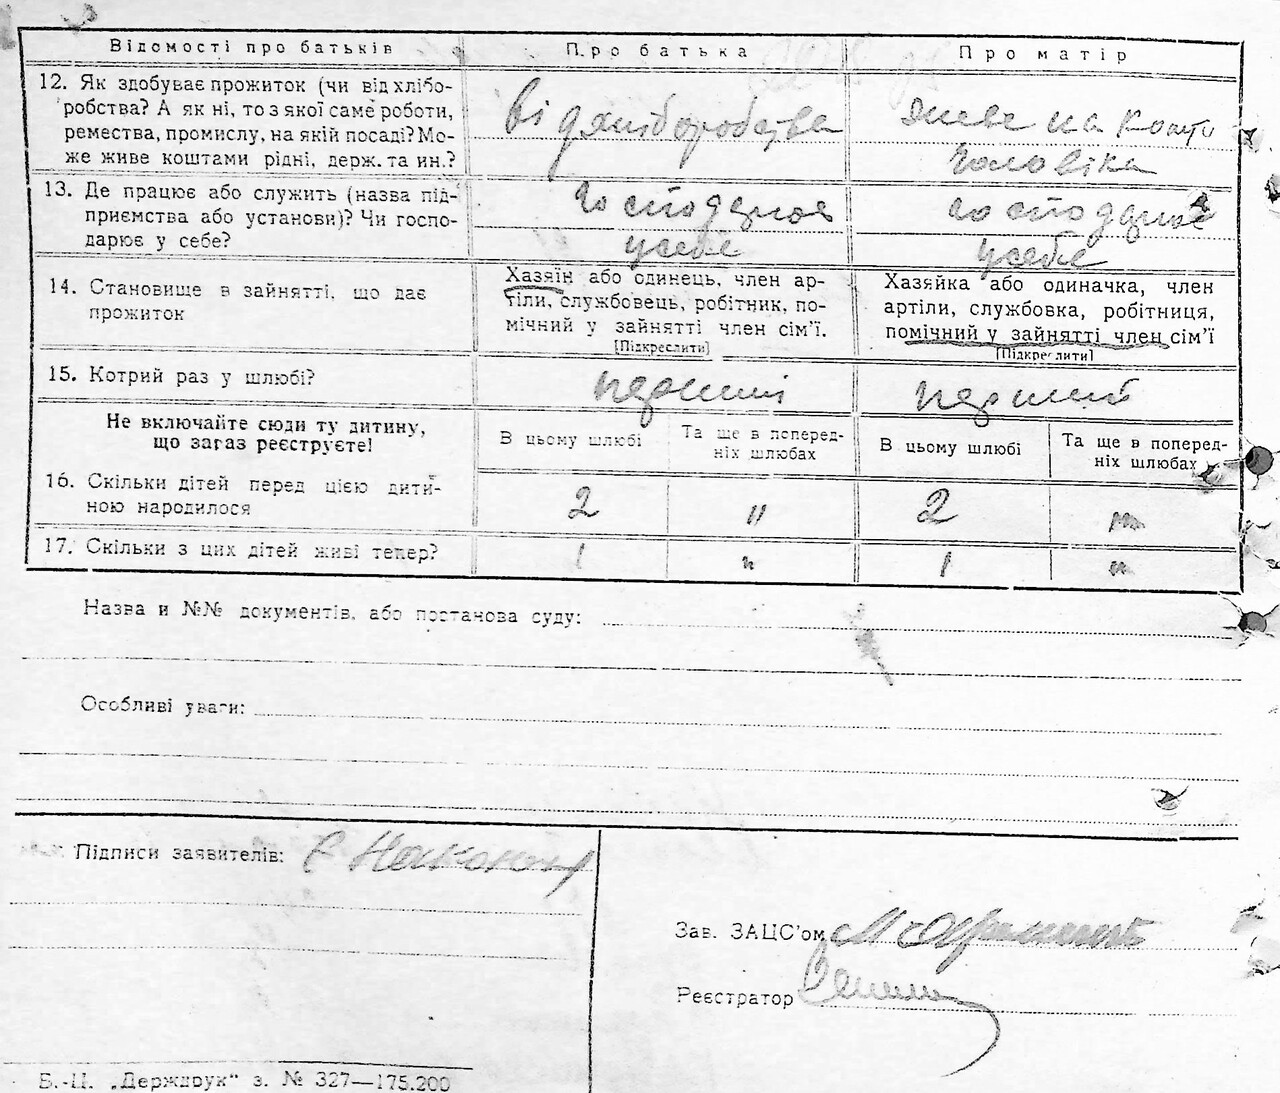 Відомості про батьків
Про батька
Про матір
12. Як здобуває прожиток (чи від хлібо-
робства? А як ні, то з якої саме роботи,
ремества, промислу, на якій посаді? Мо-
же живе коштами рідні, держ. та ин.?
від хліборобства
живе на кошти
чоловіка
13. Де працює або служить (назва під-
приємства або установи)? Чи госпо-
дарює у себе?
господарює
у себе
господарює
у себе
14. Становище в зайнятті, що дає
прожиток
Хазяїн або одинець, член ар-
тіли, службовець, робітник, по-
мічний у зайнятті член сім'ї.
[Підкреслити]
Хазяйка або одиначка, член
артіли, службовка, робітниця,
помічний у зайнятті член сім'ї
[Підкреслити]
15. Котрий раз у шлюбі?
перший
перший
Не включайте сюди ту дитину,
що зараз реєструєте!
В цьому шлюбі
Та ще в поперед-
ніх шлюбах
В цьому шлюбі
Та ще в поперед-
ніх шлюбах
16. Скільки дітей перед цією дити-
ною народилося
2 " 2 "
17. Скільки з цих дітей живі тепер?
1 " 1 "
Назва и №№ документів, або постанова суду:
Особливі уваги:
Підписи заявителів:
Зав. ЗАЦС'ом
Реєстратор
Б.-Ц. „Держдрук" з. № 327—175.200